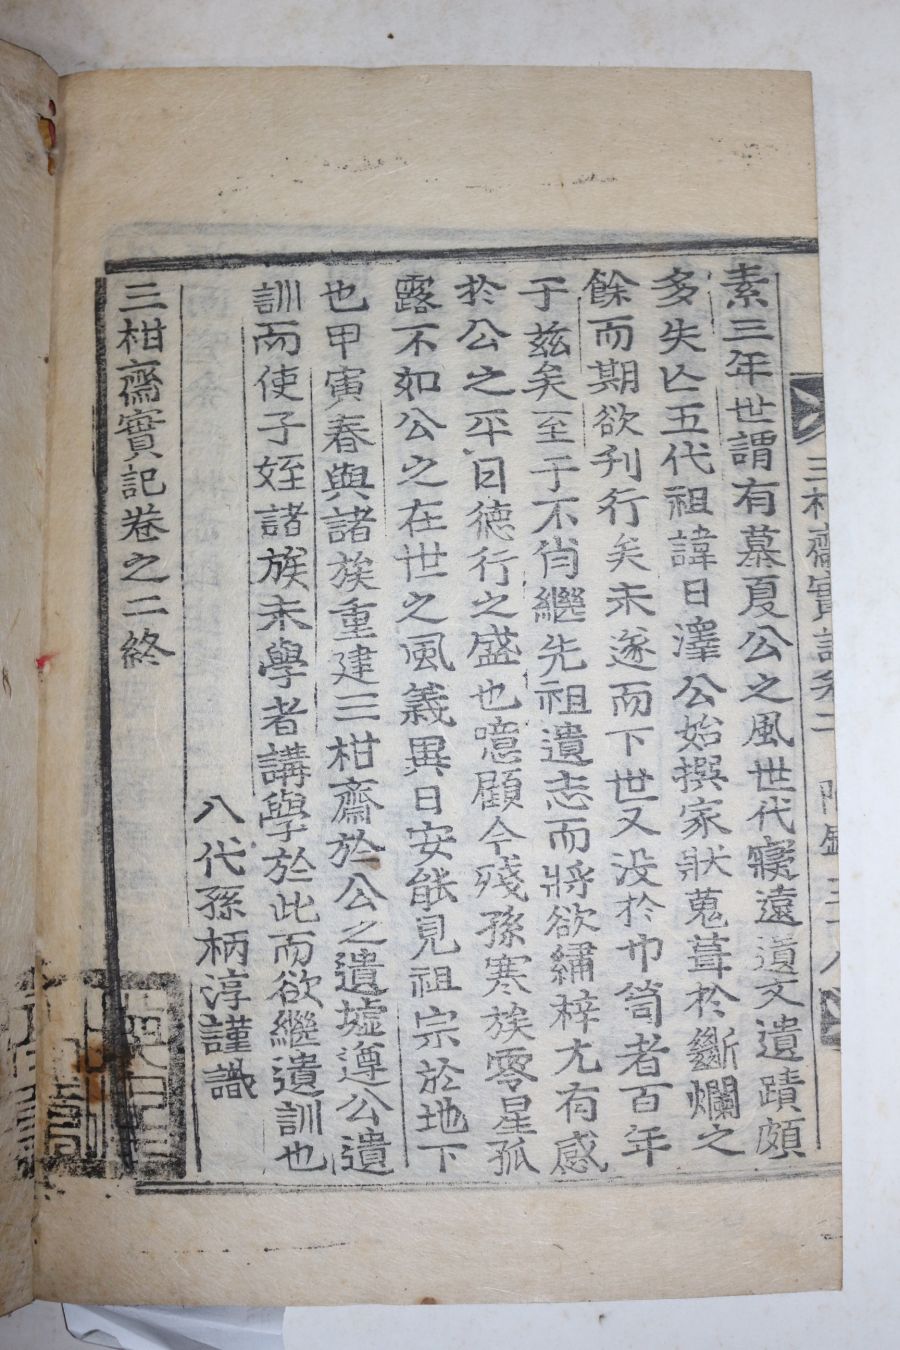 三柑齋實記卷二
素三年世謂有慕夏公之風世代寢遠遺文遺蹟頗
多失亾五代祖諱日澤公始撰家狀蒐葺於斷爛之
餘而期欲刋行矣未遂而下世又没於巾笥者百年
于兹矣至于不肖繼先祖遺志而將欲繡梓尤有感
於公之平日德行之盛也噫顧今殘孫寒族零星孤
露不如公之在世之風義異日安能見祖宗於地下
也甲寅春與諸族重建三柑齋於公之遺墟遵公遺
訓而使子姪諸族未學者講學於此而欲繼遺訓也
八代孫柄淳謹識
三柑齋實記卷之二終